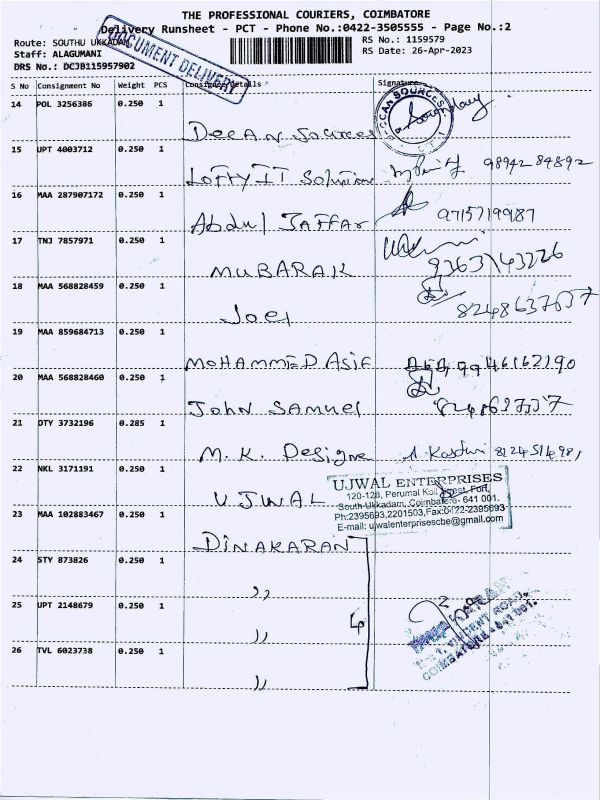 THE PROFESSIONAL COURIERS, COIMBATORE
Delivery Runsheet - PCT - Phone No.:0422-3505555 - Page No.:2
Route: SOUTHU UKKADAM
RS No.: 1159579
Staff: ALAGUMANI
RS Date: 26-Apr-2023
DRS No.: DCJB115957902
DOCUMENT DELIVERY
S No Consignment No Weight PCS Consignee Details Signature
14 POL 3256386 0.250 1
DECAN SOURCES
15 UPT 4003712 0.250 1
LOFTY IT Solution 98942 84892
16 MAA 287907172 0.250 1
Abdul JAFFAR 9715719987
17 TNJ 7857971 0.250 1
MUBARAK 9363143226
18 MAA 568828459 0.250 1
Joel 8248637337
19 MAA 859684713 0.250 1
MOHAMMED ASIF 9946162190
20 MAA 568828460 0.250 1
John SAMUEL
21 DTY 3732196 0.285 1
M.K. Designe
22 NKL 3171191 0.250 1
UJWAL
UJWAL ENTERPRISES
120-128, Perumal Koil Street, Fort,
South Ukkadam, Coimbatore - 641 001.
Ph:2395693,2201503,Fax:0422-2395693
E-mail: ujwalenterprisescbe@gmail.com
23 MAA 102883467 0.250 1
DINAKARAN
24 STY 873826 0.250 1
,,
25 UPT 2148679 0.250 1
,,
4
26 TVL 6023738 0.250 1
,,